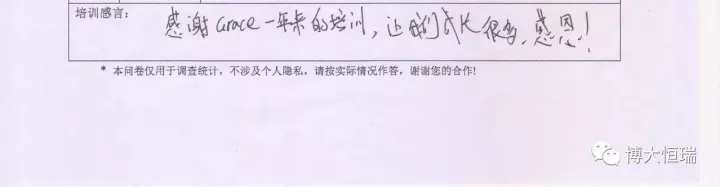 培训感言：
感谢Grace一年来的培训，让我们成长很多，感恩！
* 本问卷仅用于调查统计，不涉及个人隐私，请按实际情况作答，谢谢您的合作!
博大恒瑞